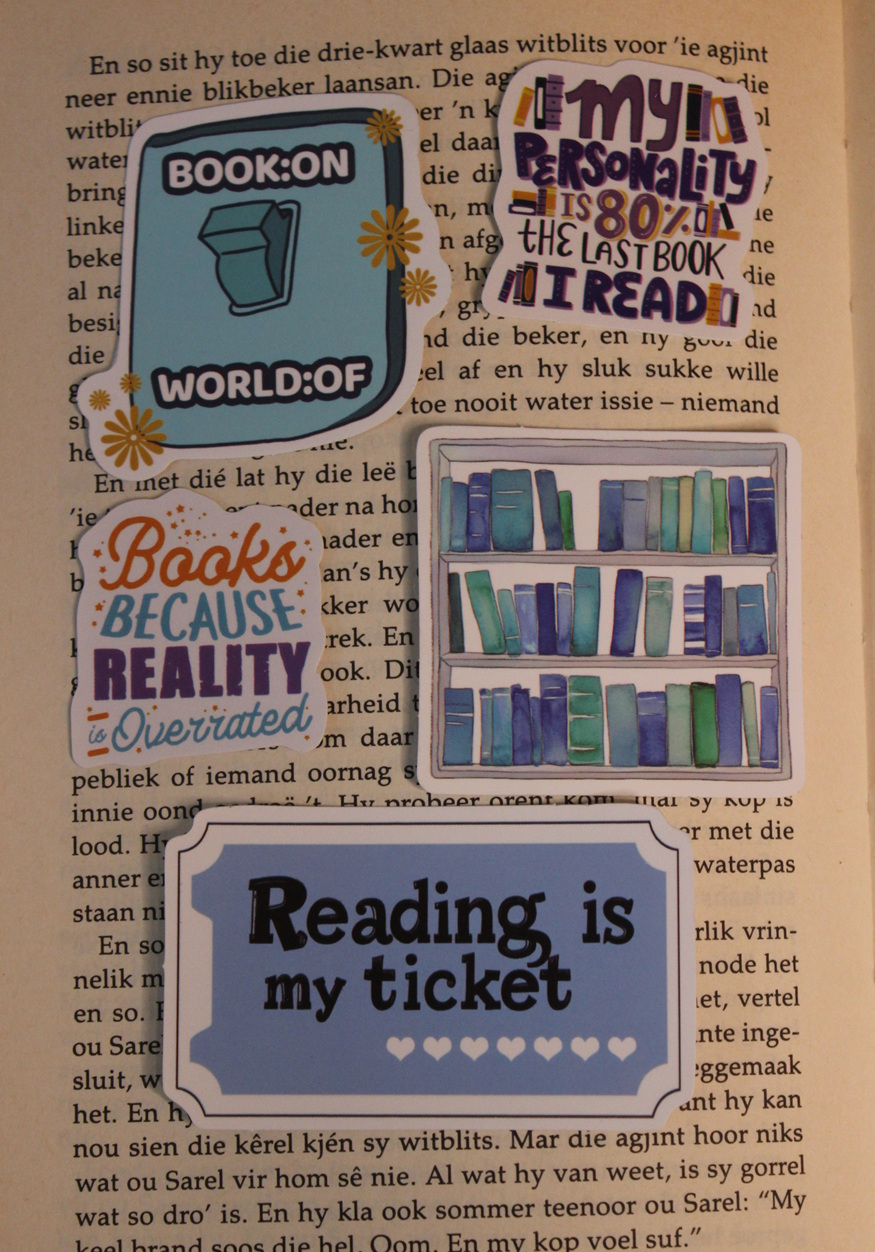 En so sit hy toe die drie-kwart glaas witblits voor 'ie agjint
neer ennie blikbeker laansan. Die die
'n
die
bring
linke
beke
al
die beker, en hy die
die af en hy sluk sukke wille
toe nooit water issie – niemand
nie.
En met dié lat hy die leë
nader na
nader
hy
trek. En
daar
pebliek of iemand oornag
innie 't. Hy probeer orent kom, mar sy kop is
lood. met die
anner waterpas
staan
En so vrin-
nelik node het
en so. vertel
ou Sarel inge-
sluit,
het. En hy kan
nou sien die kêrel kjén sy witblits. Mar die agjint hoor niks
wat ou Sarel vir hom sê nie. Al wat hy van weet, is sy gorrel
wat so dro' is. En hy kla ook sommer teenoor ou Sarel: "My
keel brand soos die hel, Oom. En my kop voel suf."
BOOK:ON
WORLD:OF
MY
PERSONALITY
IS 80%
THE LAST BOOK
I READ
Books
BECAUSE
REALITY
is Overrated
Reading is
my ticket